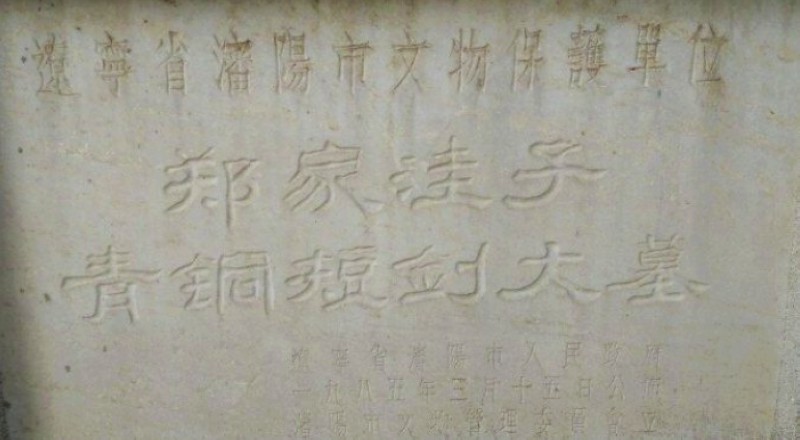 遼寧省瀋陽市文物保護單位
郑家洼子
青铜短剑大墓
遼寧省瀋陽市人民政府
一九八五年三月十五日公佈
瀋陽市文物管理委員会立